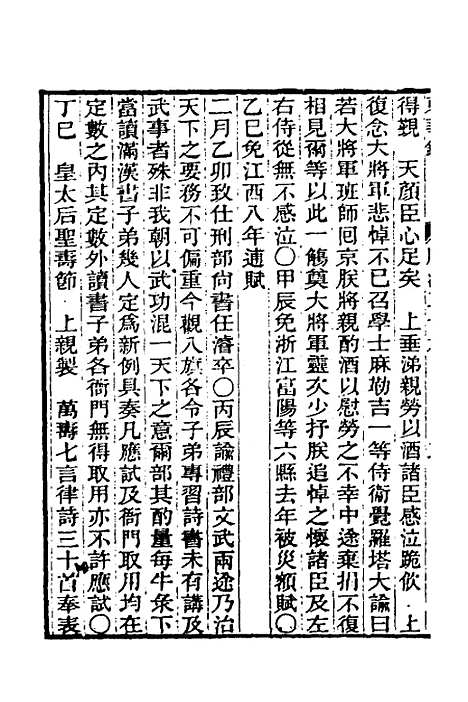 得覲　天顏臣心足矣　上垂涕親勞以酒諸臣感泣跪飲　上
復念大將軍悲悼不已召學士麻勒吉一等侍衛覺羅塔大諭曰
若大將軍班師囘京朕將親酌酒以慰勞之不幸中途棄捐不復
相見爾等以此一觴奠大將軍靈次少抒朕追悼之懷諸臣及左
右侍從無不感泣〇甲辰免浙江富陽等六縣去年被災額賦〇
乙巳免江西八年逋賦
二月乙卯致仕刑部尚書任濬卒〇丙辰諭禮部文武兩途乃治
天下之要務不可偏重今觀八旗各令子弟專習詩書未有講及
武事者殊非我朝以武功混一天下之意爾部其酌量每牛彔下
當讀滿漢書子弟幾人定爲新例具奏凡應試及衙門取用均在
定數之內其定數外讀書子弟各衙門無得取用亦不許應試〇
丁巳　皇太后聖壽節　上親製　萬壽七言律詩三十首奉表